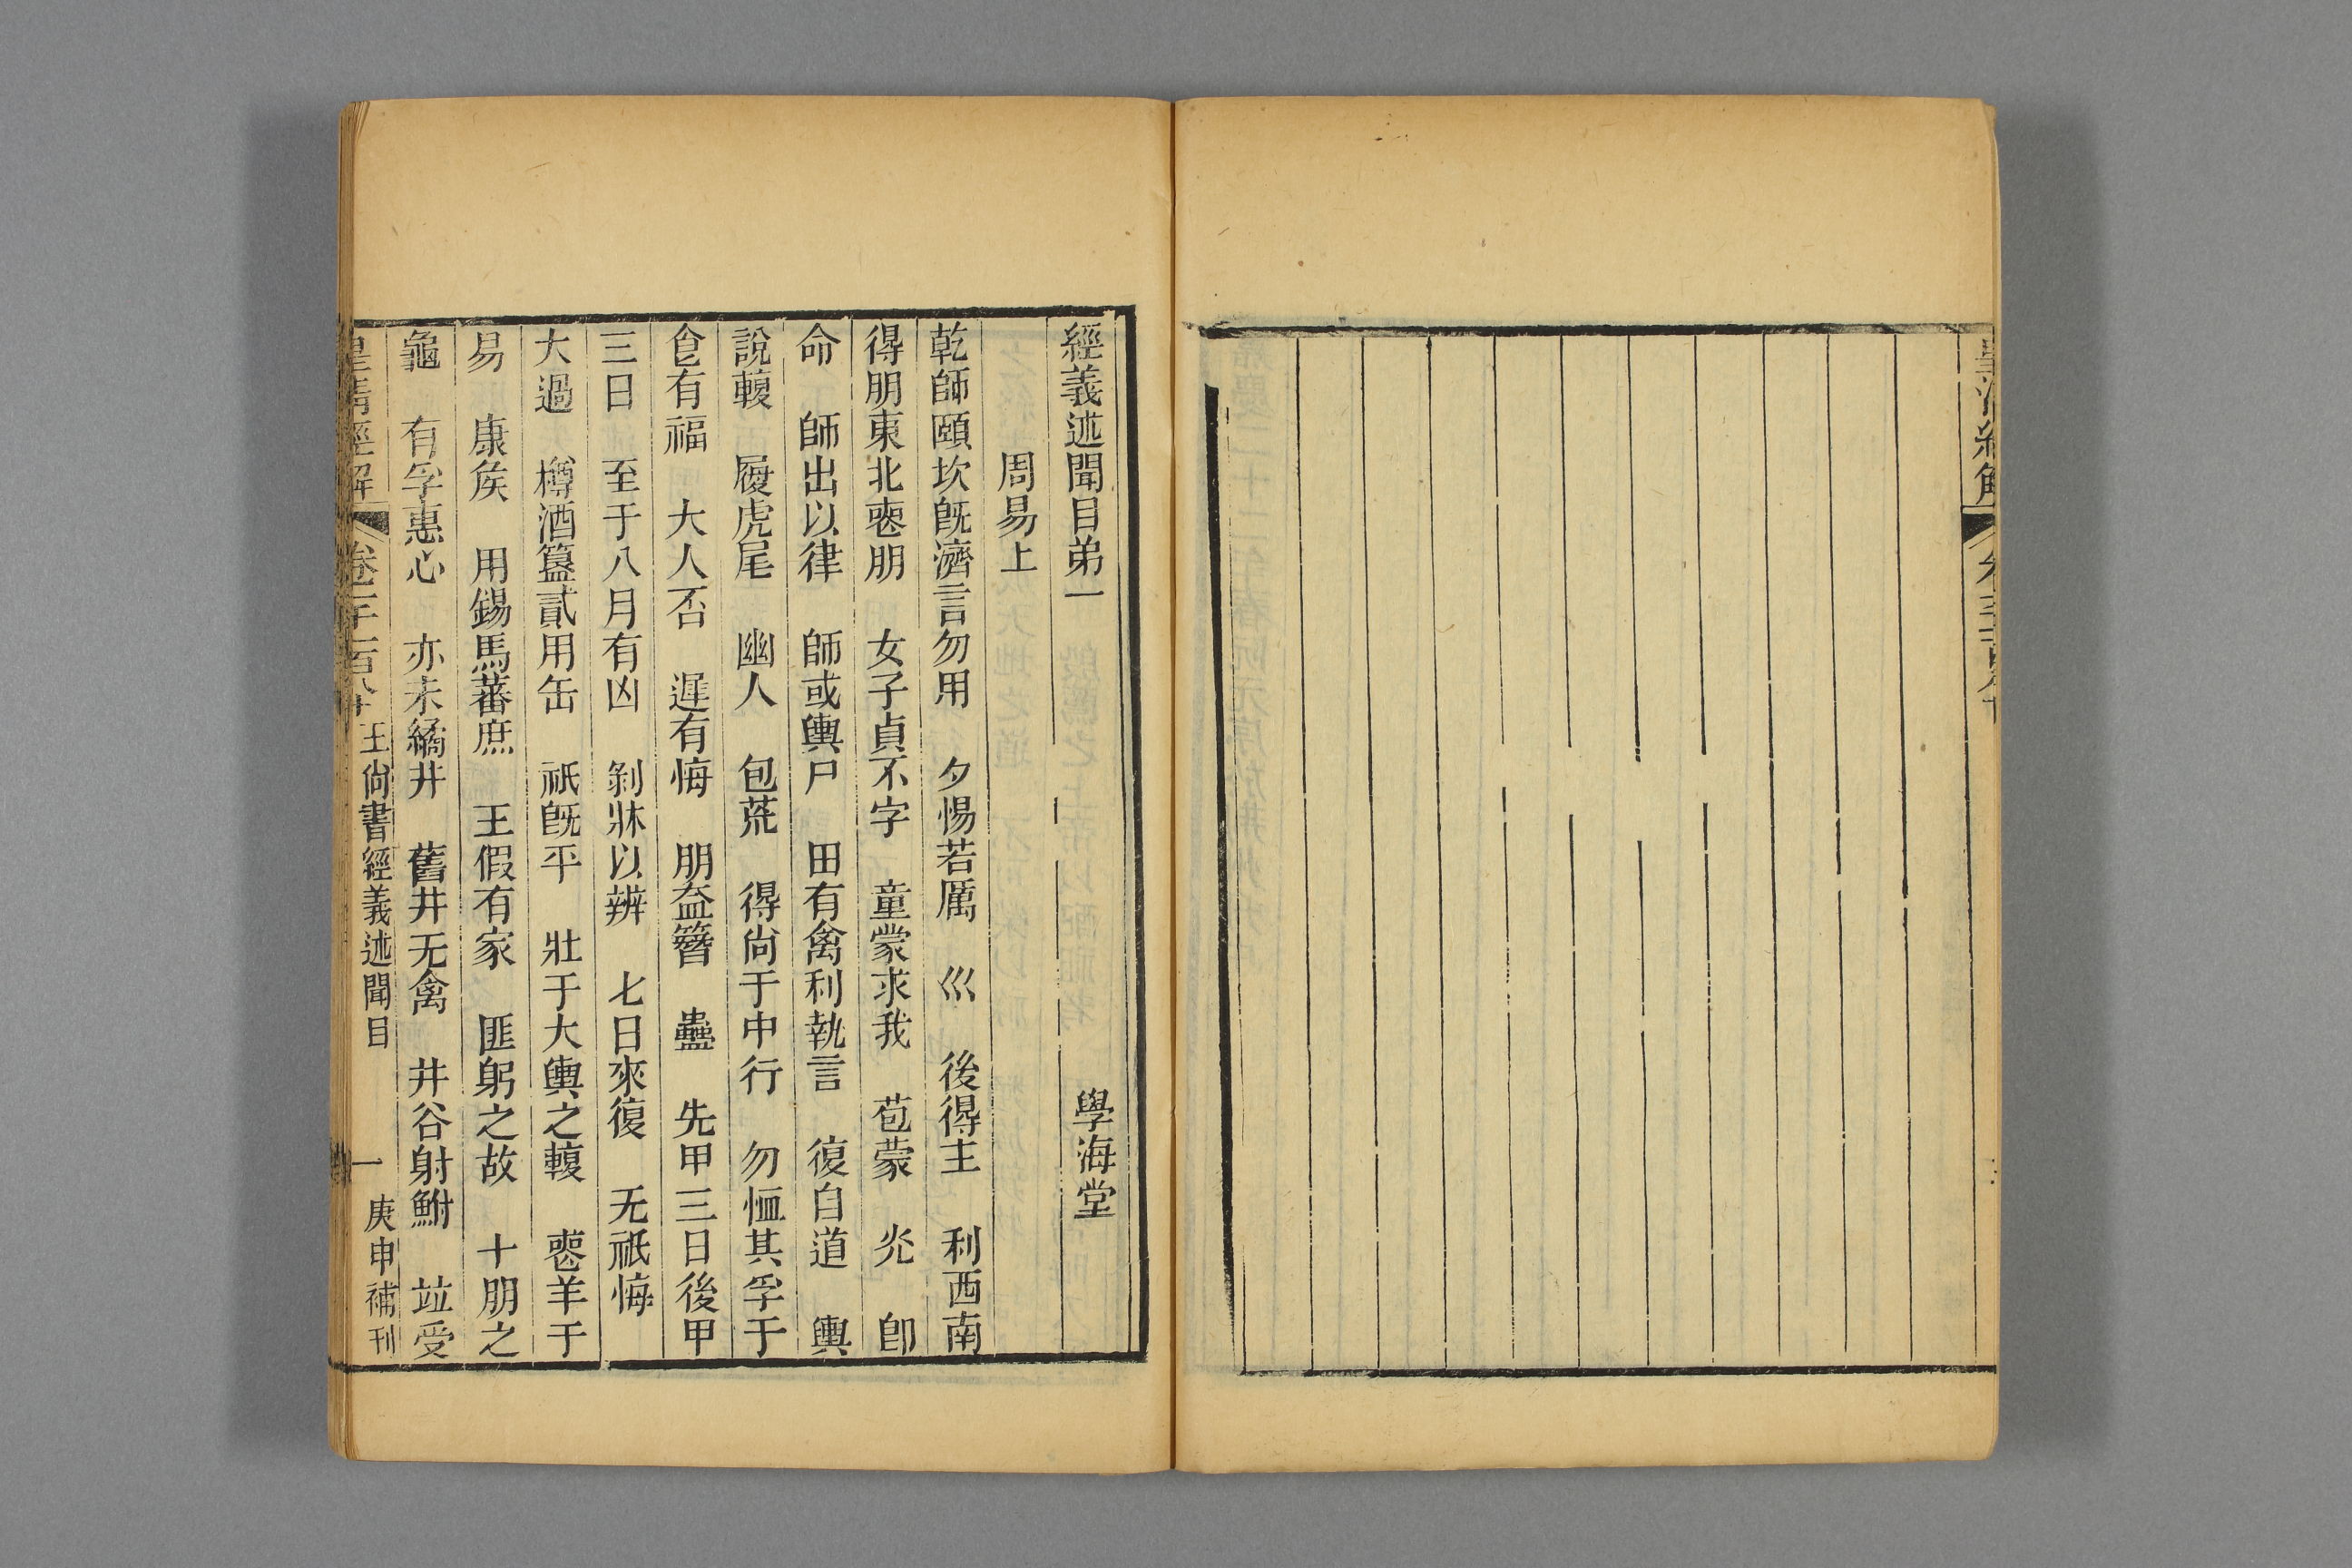 經義述聞目弟一　學海堂
周易上
乾師頤坎旣濟言勿用　夕惕若厲　巛　後得主　利西南
得朋東北喪朋　女子貞不字　童蒙求我　苞蒙　灮　卽
命　師出以律　師或輿尸　田有禽利執言　復自道　輿
說輹　履虎尾　幽人　包荒　得尙于中行　勿恤其孚于
食有福　大人否　遲有悔　朋盍簪　蠱　先甲三日後甲
三日　至于八月有凶　剝牀以辨　七日來復　无祇悔
大過　樽酒簋貳用缶　祇旣平　壯于大輿之輹　喪羊于
易　康矦　用錫馬蕃庶　王假有家　匪躬之故　十朋之
龜　有孚惠心　亦未繘井　舊井无禽　井谷射鮒　竝受
皇清經解　卷一千一百八十　王尙書經義述聞目　一　庚申補刊
皇清經解